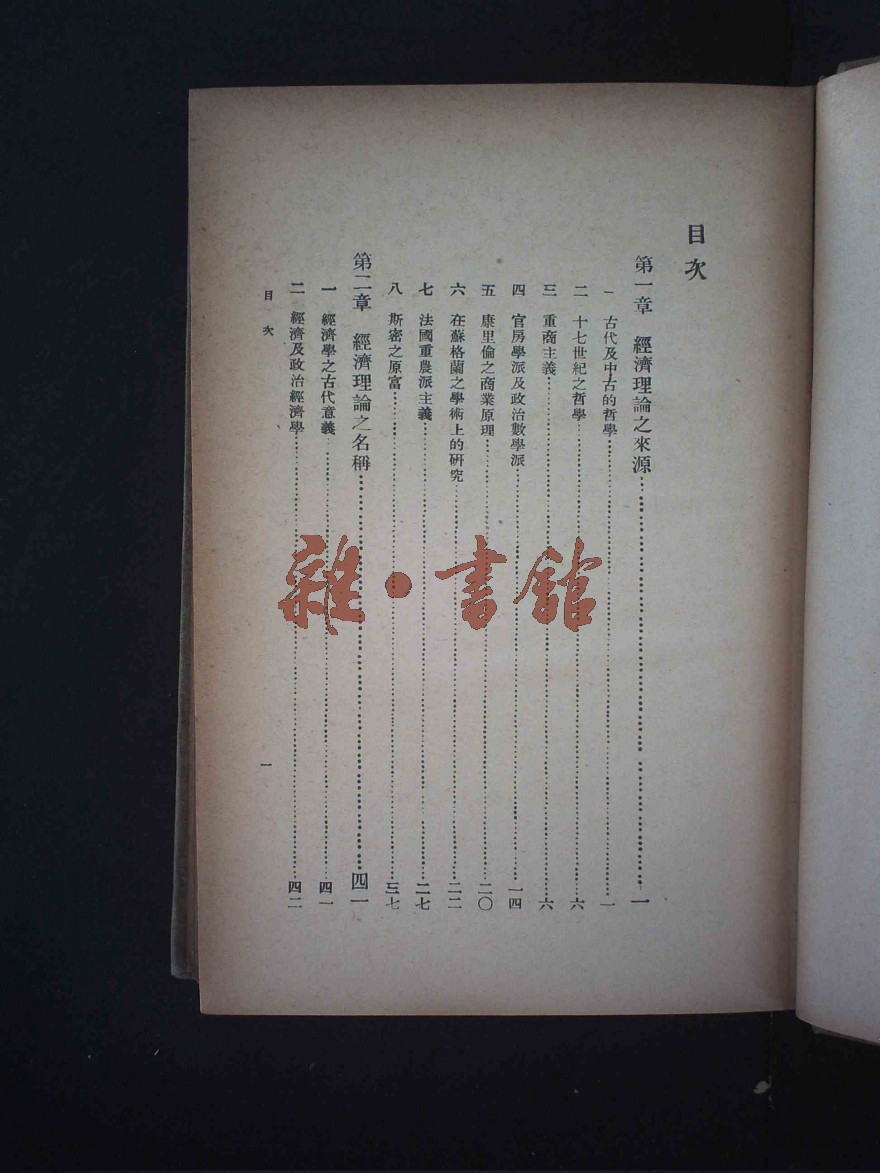 目次
第一章　經濟理論之來源……一
一　古代及中古的哲學……一
二　十七世紀之哲學……六
三　重商主義……六
四　官房學派及政治數學派……一四
五　康里倫之商業原理……二〇
六　在蘇格蘭之學術上的研究……二二
七　法國重農派主義……二七
八　斯密之原富……三七
第二章　經濟理論之名稱……四一
一　經濟學之古代意義……四一
二　經濟及政治經濟學……四二
目次　一
雜·書館